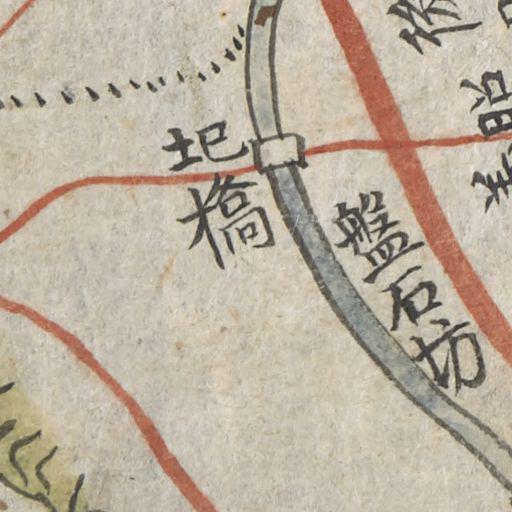 圯橋
盤石坊